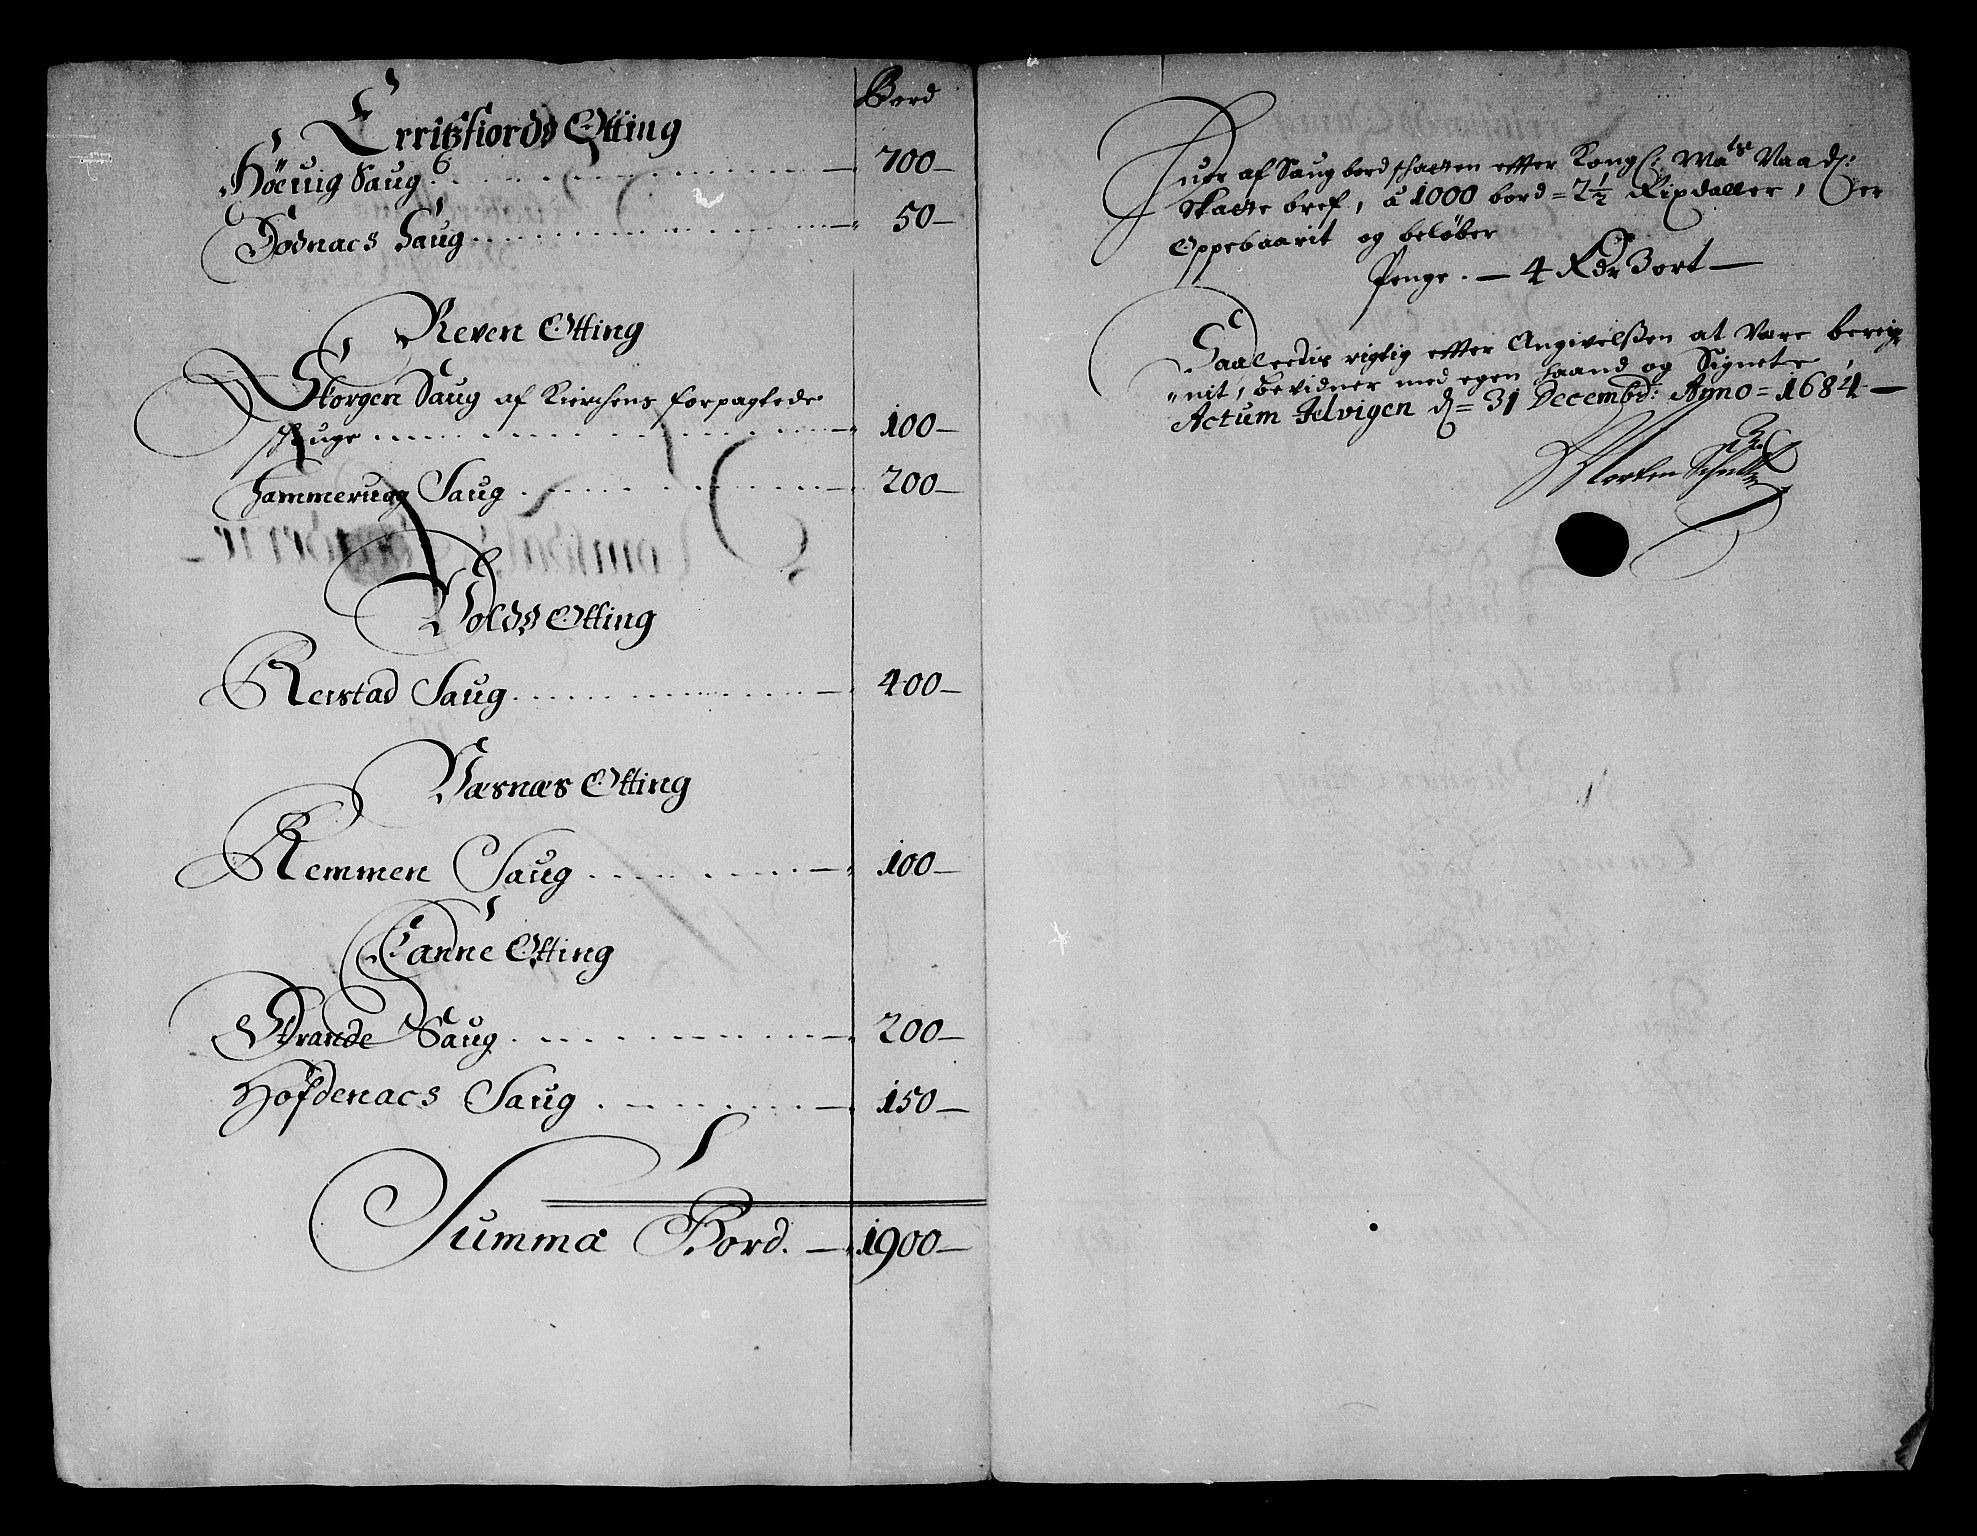 Bord
Erritzfiords Otting
Höeuig Saug 700
Södnacs Saug 50
Reven Otting
Storgen Saug af Kierchens forpagtede
schouge 100
Hammeruag Saug 200
Volds Otting
Reistad Saug 400
Væsnæs Otting
Remmen Saug 100
Tanne Otting
Strande Saug 200
Hofdenacs Saug 150
Summa Bord. 1900
Huor af Saugbordschatten effter Kongl: Mats Naads:
Skatte bref, a 1000 bord = 2½ Rixdaller, er
Oppebaarit og beløber
Penge. 4 Rdr 3 ort
Saaleedis rigtig effter Angivelßen at Vare bereig-
"nit, bevidner med egen haand og Signete,
Actum Jelvigen d= 31 Decembr: Anno = 1684
Morten Schultz